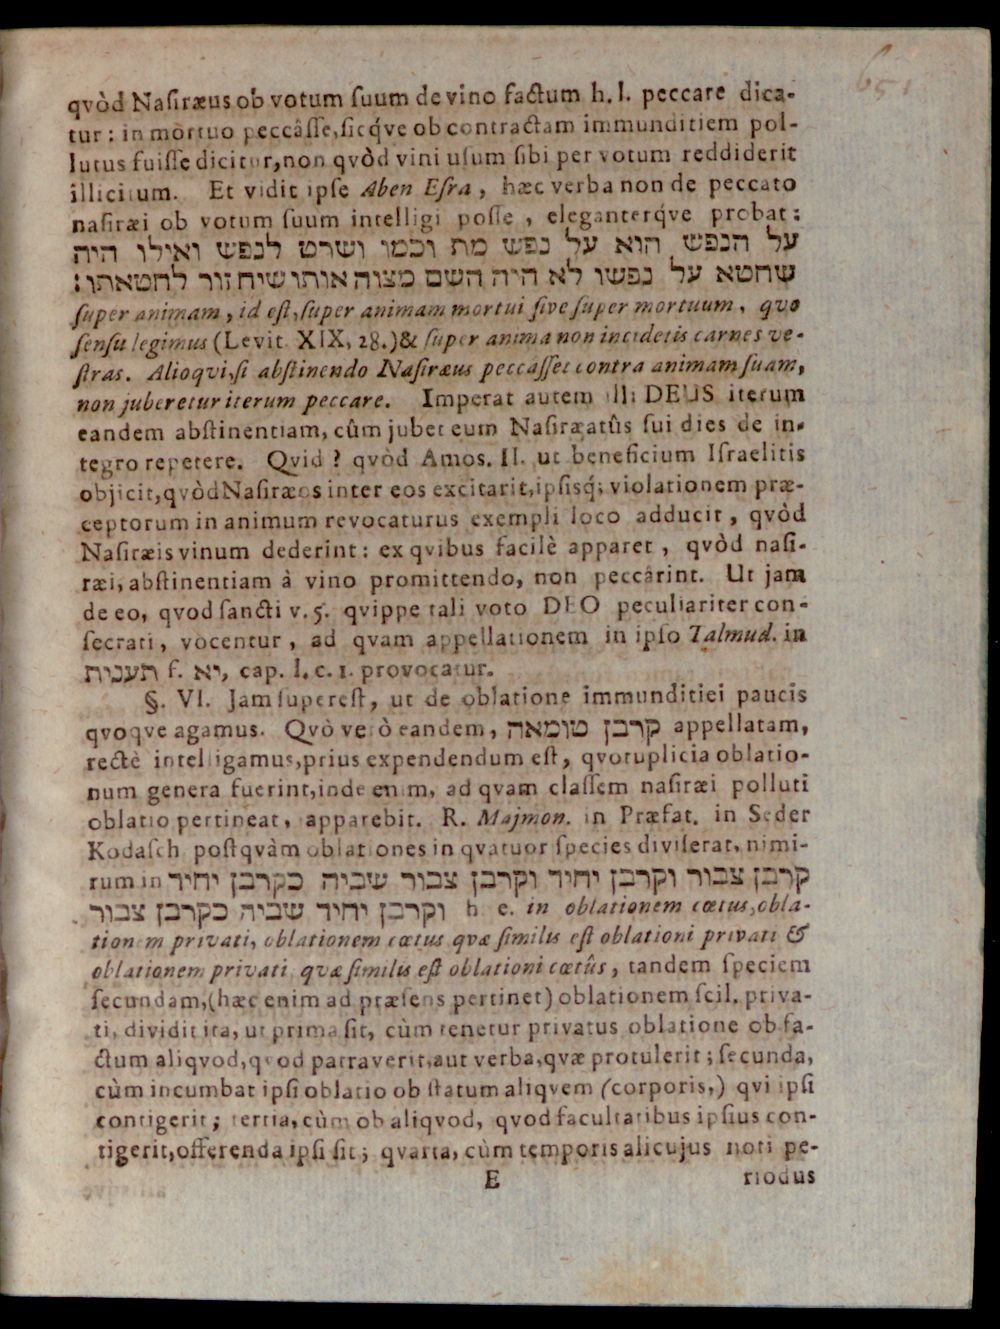 651
qvòd Naſiræus ob votum ſuum de vino factum h. l. peccare dica-
tur: in mortuo peccâſſe, ſicq́ve ob contractam immunditiem pol-
lutus fuiſſe dicitur, non qvòd vini uſum ſibi per votum reddiderit
illicitum. Et vidit ipſe Aben Eſra, hæc verba non de peccato
naſiræi ob votum ſuum intelligi poſſe, eleganterq́ve probat:
על הנפש הוא על נפש מת וכמו ושרט לנפש ואילו היה
שחטא על נפשו לא היה השם מצוה אותו שיחזור לחטאתו:
ſuper animam, id eſt, ſuper animam mortui ſive ſuper mortuum, quo
ſenſu legimus (Levit. XIX, 28.) & ſuper anima non incidetis carnes ve-
ſtras. Alioqvi, ſi abſtinendo Naſiræus peccaſſet contra animam ſuam,
non juberetur iterum peccare. Imperat autem illi DEUS iterum
eandem abſtinentiam, cûm jubet eum Naſiræatûs ſui dies de in-
tegro repetere. Qvid? qvòd Amos. II. ut beneficium Iſraelitis
objicit, qvòd Naſiræos inter eos excitarit, ipſisq́; violationem præ-
ceptorum in animum revocaturus exempli loco adducit, qvòd
Naſiræis vinum dederint: ex qvibus facilè apparet, qvòd naſi-
ræi, abſtinentiam à vino promittendo, non peccârint. Ut jam
de eo, qvod ſancti v. 5. qvippe tali voto DEO peculiariter con-
ſecrati, vocentur, ad qvam appellationem in ipſo Talmud. in
תענית f. יא, cap. I. c. 1. provocatur.
§. VI. Jam ſupereſt, ut de oblatione immunditiei paucis
qvoqve agamus. Qvò verò eandem, קרבן טומאה appellatam,
rectè intelligamus, prius expendendum eſt, qvotuplicia oblatio-
num genera fuerint, inde enim, ad qvam claſſem naſiræi polluti
oblatio pertineat, apparebit. R. Majmon. in Præfat. in Seder
Kodaſch poſtqvàm oblationes in qvatuor ſpecies diviſerat, nimi-
rum in קרבן צבור וקרבן יחיד וקרבן צבור שביה כקרבן יחיד
וקרבן יחיד שביה כקרבן צבור h. e. in oblationem cœtus, obla-
tionem privati, oblationem cœtus qvæ ſimilis eſt oblationi privati &
oblationem privati qvæ ſimilis eſt oblationi cœtûs, tandem ſpeciem
ſecundam, (hæc enim ad præſens pertinet) oblationem ſcil. priva-
ti, dividit ita, ut prima ſit, cùm tenetur privatus oblatione ob fa-
ctum aliqvod, qvod patraverit, aut verba, qvæ protulerit; ſecunda,
cùm incumbat ipſi oblatio ob ſtatum aliqvem (corporis,) qvi ipſi
contigerit; tertia, cùm ob aliqvod, qvod facultatibus ipſius con-
tigerit, offerenda ipſi ſit; qvarta, cùm temporis alicujus noti pe-
E riodus